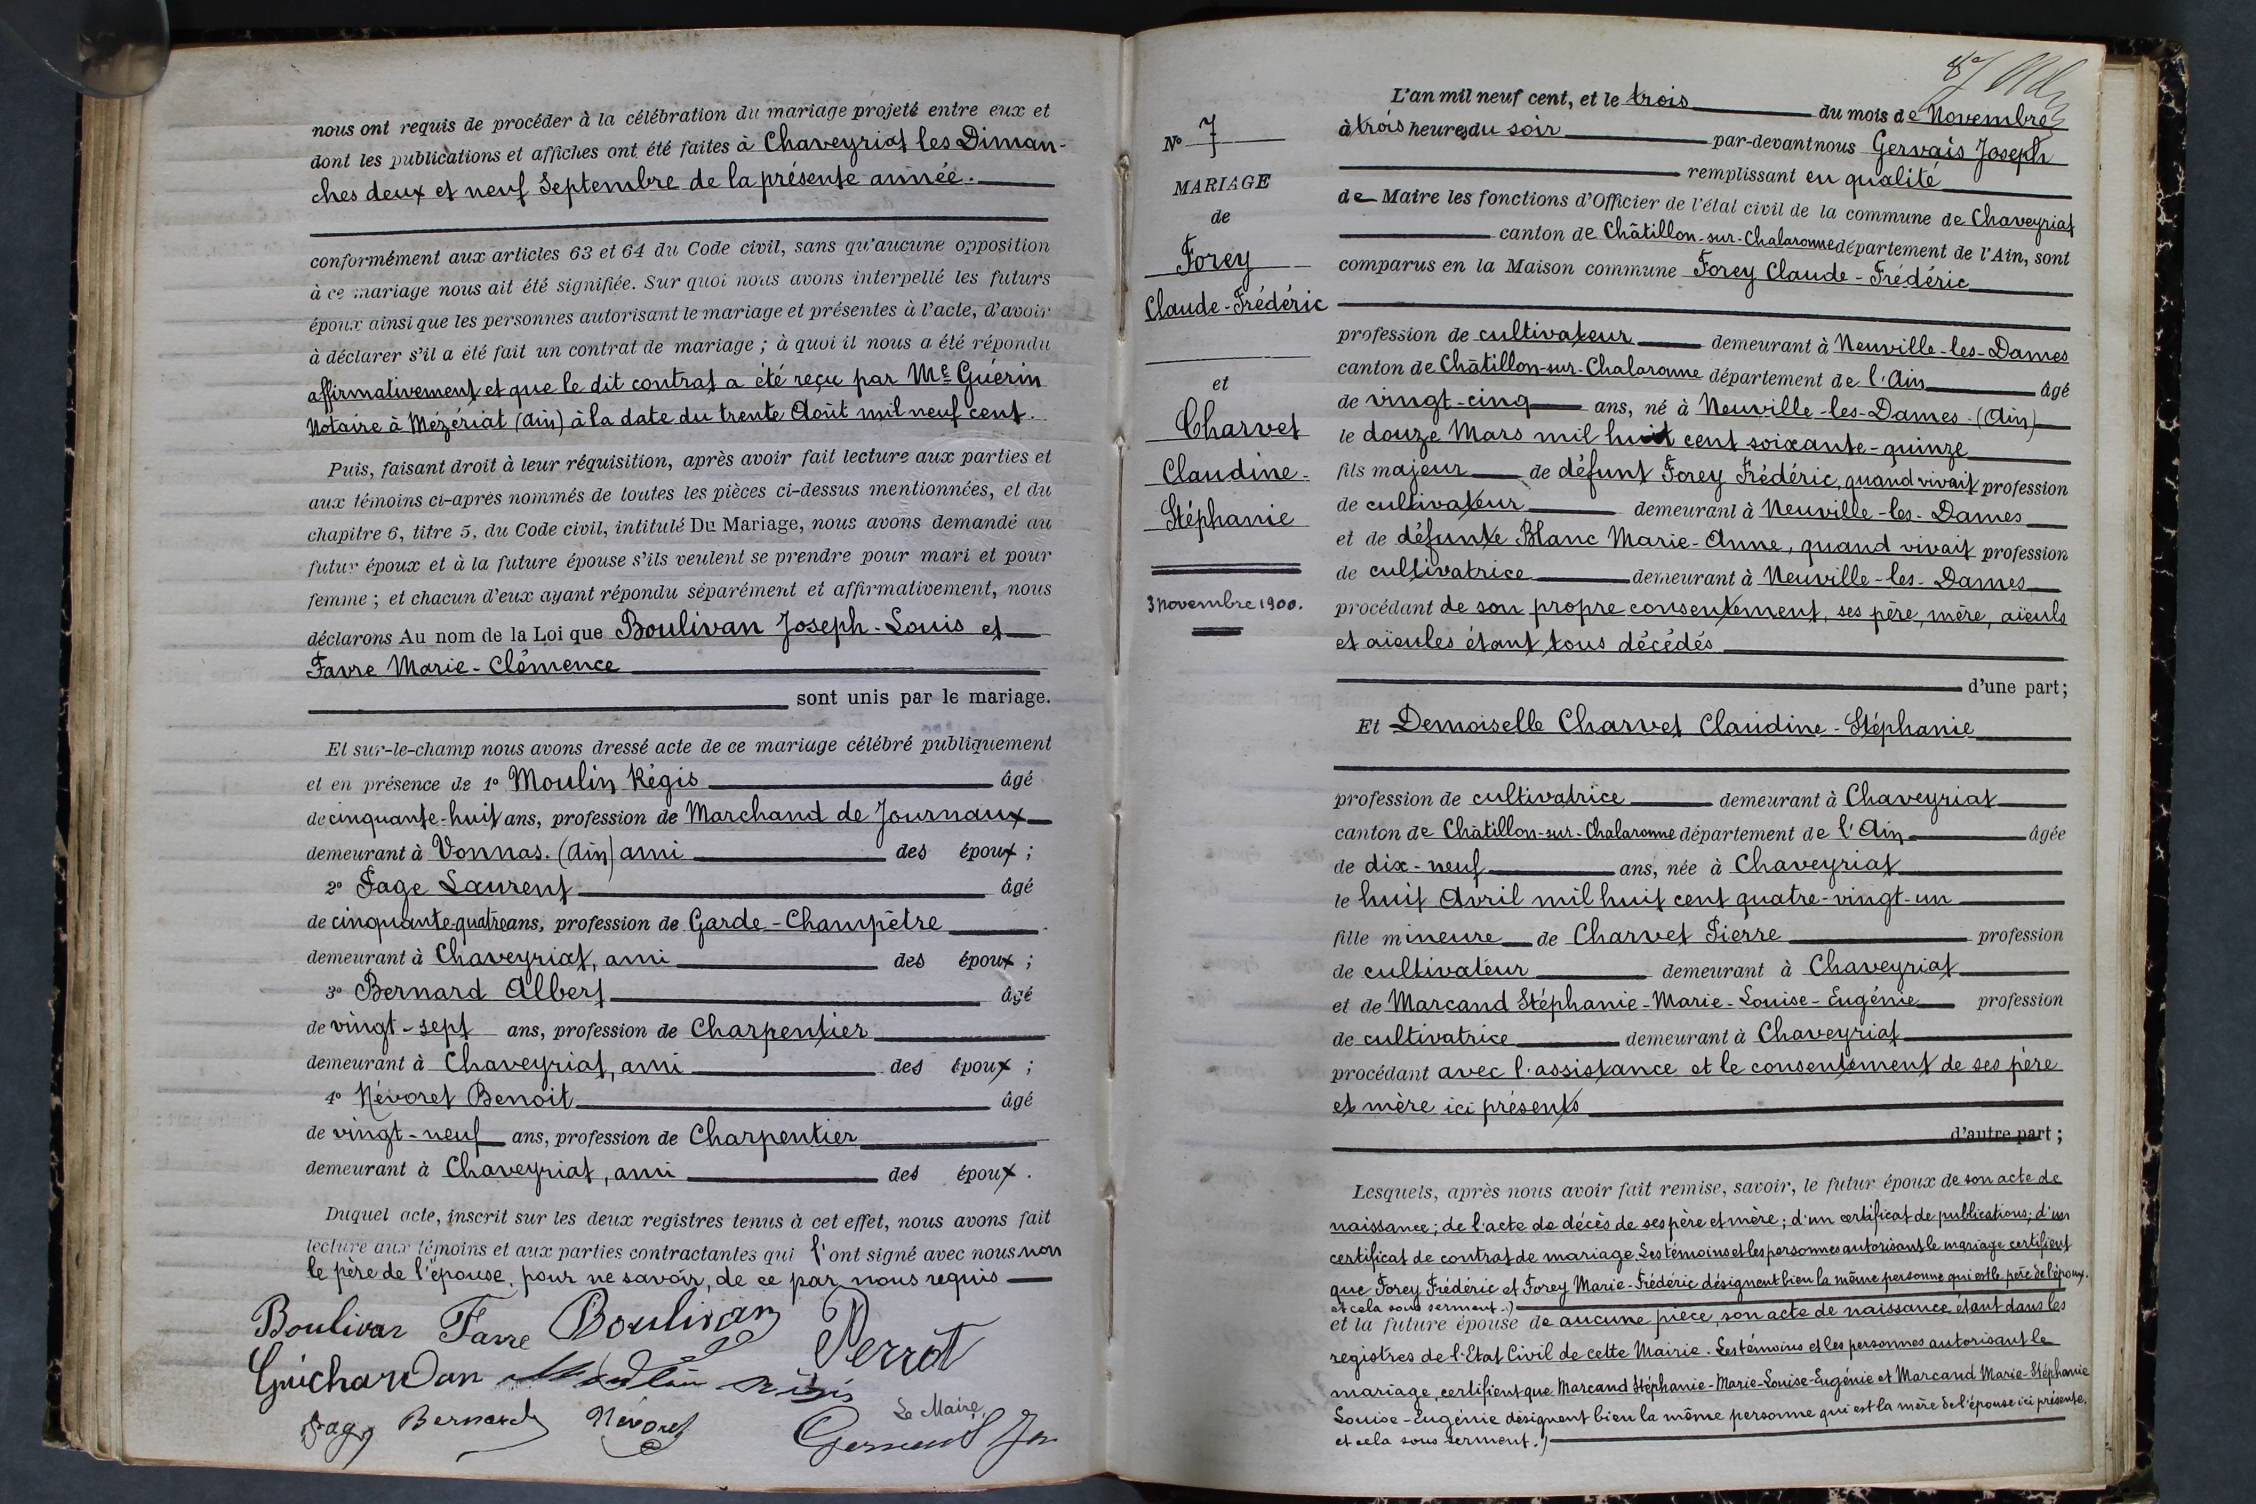 nous ont requis de procéder à la célébration du mariage projeté entre eux et
dont les publications et affiches ont été faites à Chaveyriat les Diman-
ches deux et neuf Septembre de la présente année.
conformément aux articles 63 et 64 du Code civil, sans qu'aucune opposition
à ce mariage nous ait été signifiée. Sur quoi nous avons interpellé les futurs
époux ainsi que les personnes autorisant le mariage et présentes à l'acte, d'avoir
à déclarer s'il a été fait un contrat de mariage ; à quoi il nous a été répondu
affirmativement et que le dit contrat a été reçu par Me Guérin
Notaire à Mézériat (Ain) à la date du trente Août mil neuf cent.
Puis, faisant droit à leur réquisition, après avoir fait lecture aux parties et
aux témoins ci-après nommés de toutes les pièces ci-dessus mentionnées, et du
chapitre 6, titre 5, du Code civil, intitulé Du Mariage, nous avons demandé au
futur époux et à la future épouse s'ils veulent se prendre pour mari et pour
femme ; et chacun d'eux ayant répondu séparément et affirmativement, nous
déclarons Au nom de la Loi que Boulivan Joseph-Louis et
Favre Marie-Clémence
sont unis par le mariage.
Et sur-le-champ nous avons dressé acte de ce mariage célébré publiquement
et en présence de 1° Moulin Régis âgé
de cinquante-huit ans, profession de Marchand de Journaux
demeurant à Vonnas. (Ain) ami des époux ;
2° Fage Laurent âgé
de cinquante-quatre ans, profession de Garde-Champêtre
demeurant à Chaveyriat, ami des époux ;
3° Bernard Albert âgé
de vingt-sept ans, profession de Charpentier
demeurant à Chaveyriat, ami des époux ;
4° Névoret Benoit âgé
de vingt-neuf ans, profession de Charpentier
demeurant à Chaveyriat, ami des époux.
Duquel acte, inscrit sur les deux registres tenus à cet effet, nous avons fait
lecture aux témoins et aux parties contractantes qui l'ont signé avec nous non
le père de l'épouse, pour ne savoir, de ce par nous requis
Boulivan Favre Boulivan Perrot
Guichardan Moulin Régis
Fage Bernard Névoret Le Maire
Gervais Jh
L'an mil neuf cent, et le trois du mois de Novembre
à trois heures du soir par-devant nous Gervais Joseph
remplissant en qualité
de Maire les fonctions d'Officier de l'état civil de la commune de Chaveyriat
canton de Châtillon-sur-Chalaronne département de l'Ain, sont
comparus en la Maison commune Forey Claude-Frédéric
profession de cultivateur demeurant à Neuville-les-Dames
canton de Châtillon-sur-Chalaronne département de l'Ain âgé
de vingt-cinq ans, né à Neuville-les-Dames-(Ain)
le douze Mars mil huit cent soixante-quinze
fils majeur de défunt Forey Frédéric, quand vivait profession
de cultivateur demeurant à Neuville-les-Dames
et de défunte Blanc Marie-Anne, quand vivait profession
de cultivatrice demeurant à Neuville-les-Dames
procédant de son propre consentement, ses père, mère, aïeuls
et aïeules étant tous décédés
d'une part;
Et Demoiselle Charvet Claudine-Stéphanie
profession de cultivatrice demeurant à Chaveyriat
canton de Châtillon-sur-Chalaronne département de l'Ain âgée
de dix-neuf ans, née à Chaveyriat
le huit Avril mil huit cent quatre-vingt-un
fille mineure de Charvet Pierre profession
de cultivateur demeurant à Chaveyriat
et de Marcand Stéphanie-Marie-Louise-Eugénie profession
de cultivatrice demeurant à Chaveyriat
procédant avec l'assistance et le consentement de ses père
et mère ici présents
d'autre part ;
Lesquels, après nous avoir fait remise, savoir, le futur époux de son acte de
naissance; de l'acte de décès de ses père et mère; d'un certificat de publications; d'un
certificat de contrat de mariage. Les témoins et les personnes autorisant le mariage certifient
que Forey Frédéric et Forey Marie-Frédéric désignent bien la même personne qui est le père de l'époux.
et cela sous serment.)
et la future épouse de aucune pièce, son acte de naissance étant dans les
registres de l'Etat Civil de cette Mairie. Les témoins et les personnes autorisant le
mariage, certifient que Marcand Stéphanie-Marie-Louise-Eugénie et Marcand Marie-Stéphanie
Louise-Eugénie désignent bien la même personne qui est la mère de l'épouse ici présente.
et cela sous serment.)
No 7
MARIAGE
de
Forey
Claude-Frédéric
et
Charvet
Claudine-
Stéphanie
3 novembre 1900.